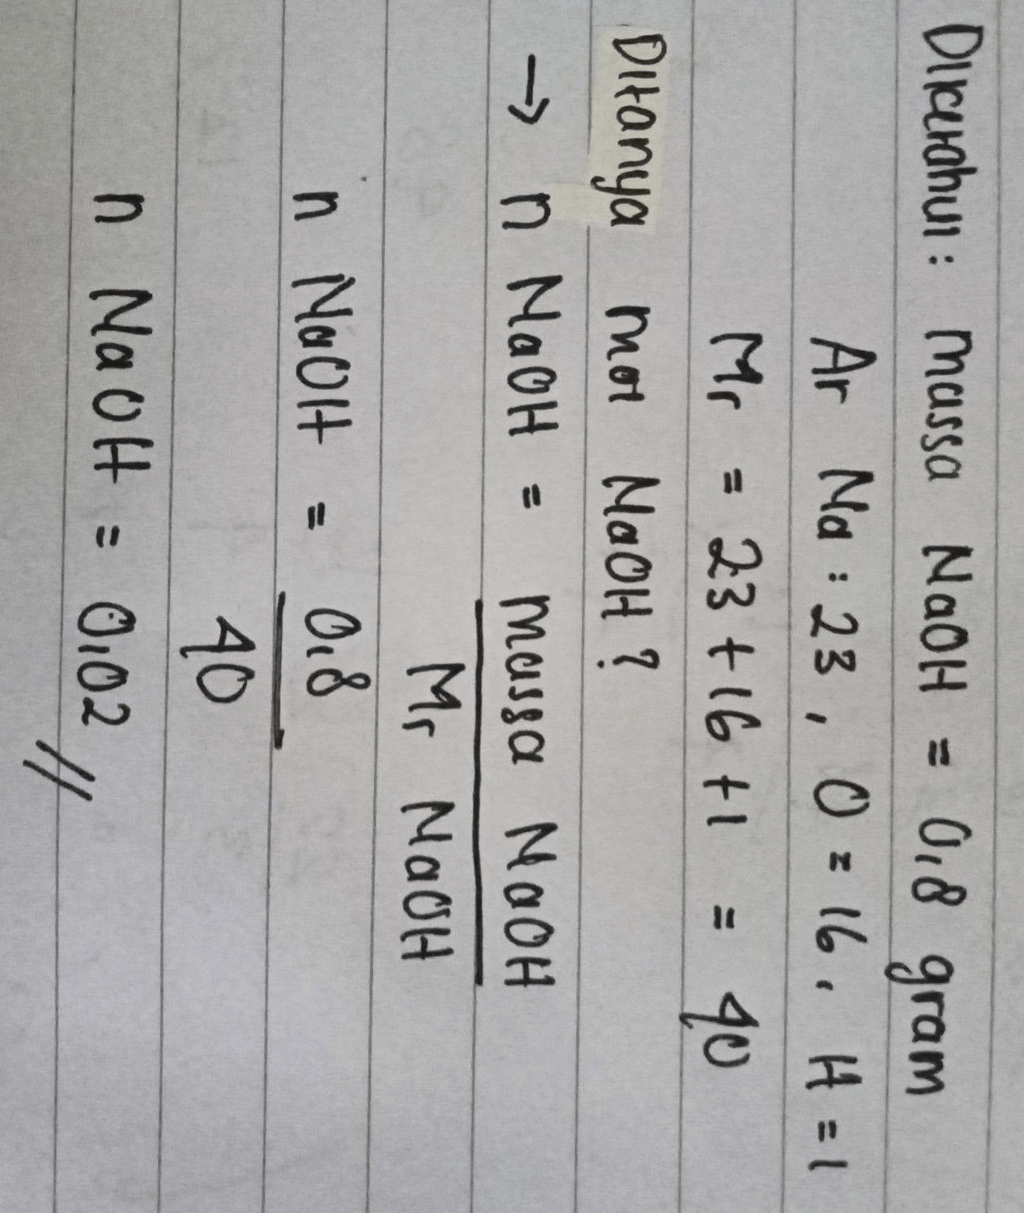 Diketahui: massa NaOH = 0,8 gram
Ar Na : 23, O = 16, H = 1
Mr = 23 + 16 + 1 = 40
Ditanya mol NaOH?
→ n NaOH = massa NaOH
Mr NaOH
n NaOH = 0,8
40
n NaOH = 0,02 //